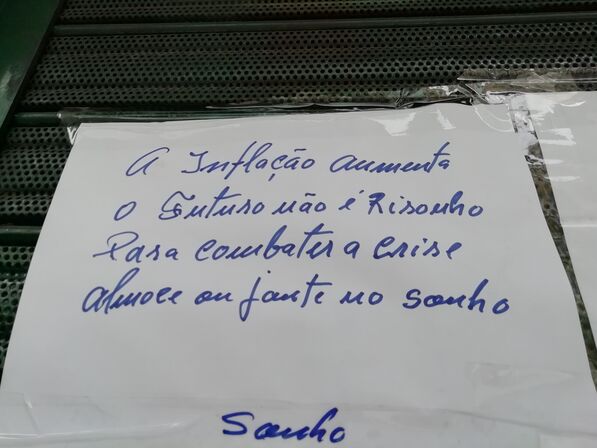 A Inflação aumenta
o Futuro não é Risonho
Para combater a crise
almoce ou jante no sonho
Sonho